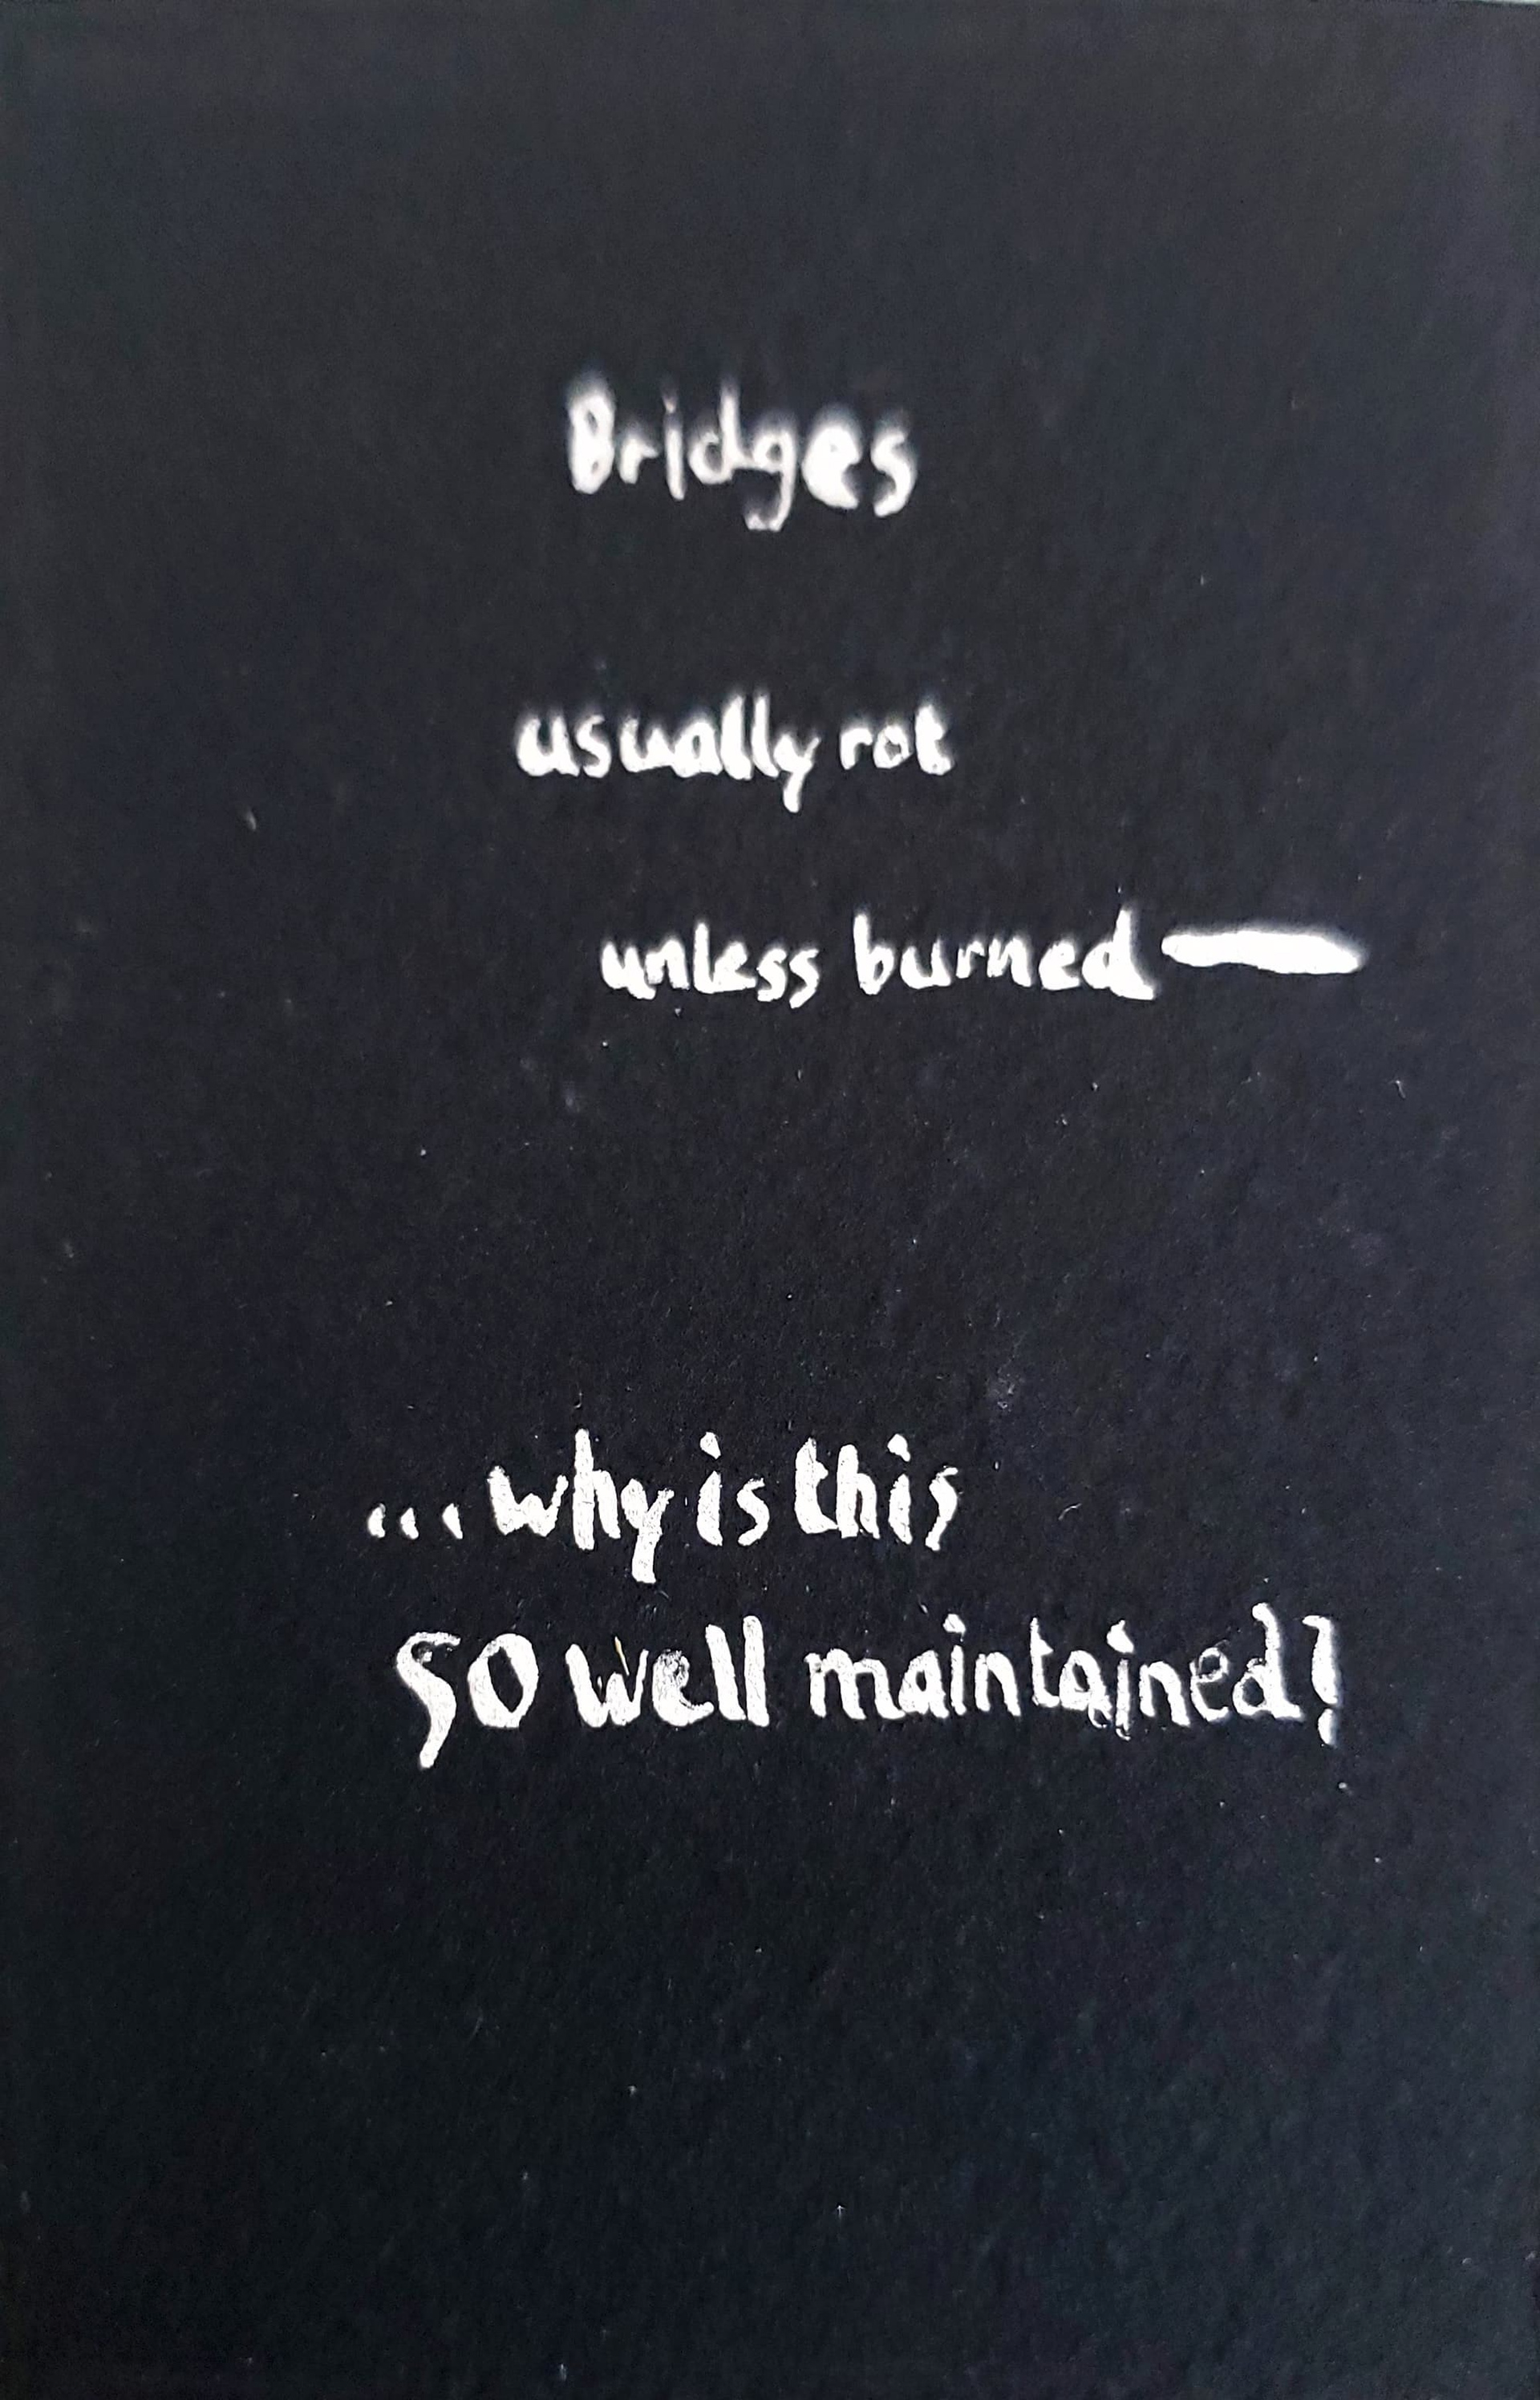 Bridges
usually rot
unless burned—
...why is this
so well maintained?